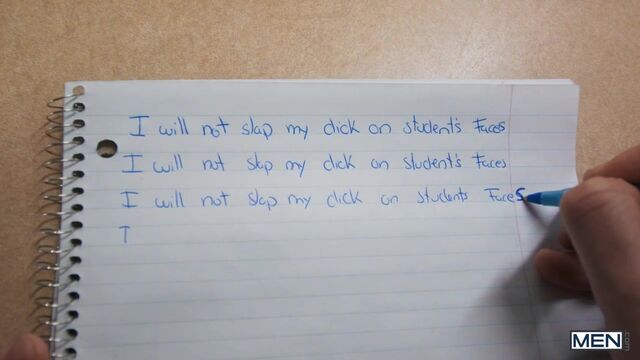 I will not slap my dick on student's Faces
I will not slap my dick on student's Faces
I will not slap my dick on students Faces
I
MEN
.com